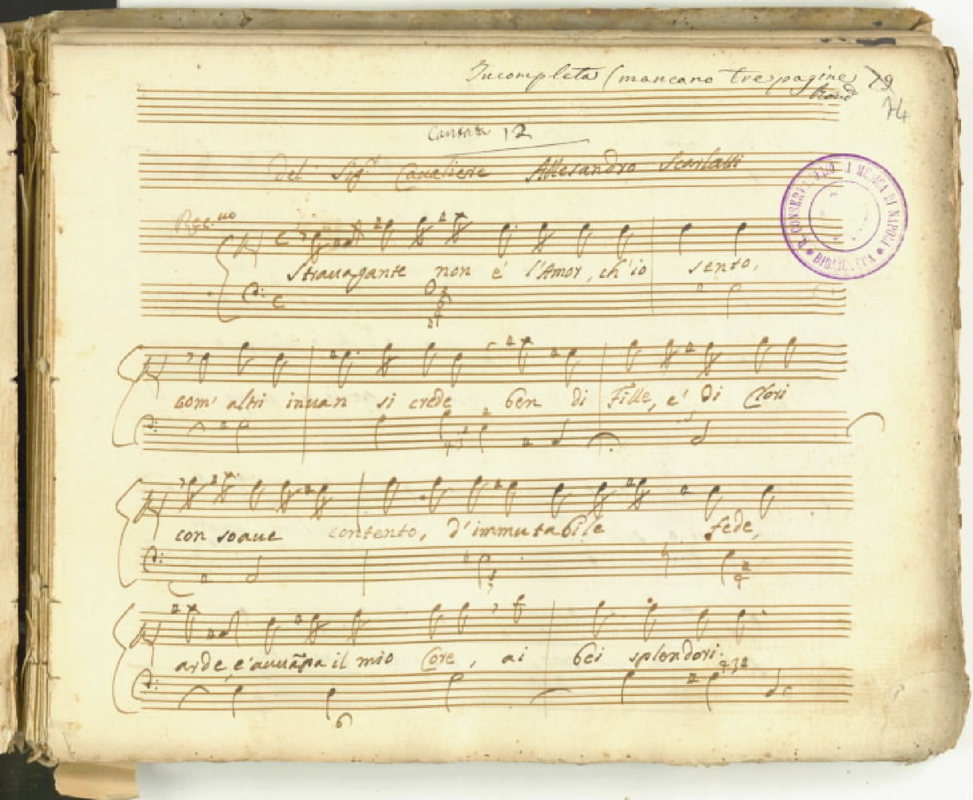 Incompleta (mancano tre pagine)
79
74
Cantata 12
del Sig.r Caualiere Allesandro Scarlatti
Rec.uo
Strauagante non è l'Amor, ch'io sento,
com' altri inuan si crede ben di Fille, e' di Clori
con soaue contento, d'immutabile fede,
arde, e' auuãpa il mio Core, ai bei splendori.
6
4 3
R. CONSERVATORIO DI MUSICA DI NAPOLI
BIBLIOTECA